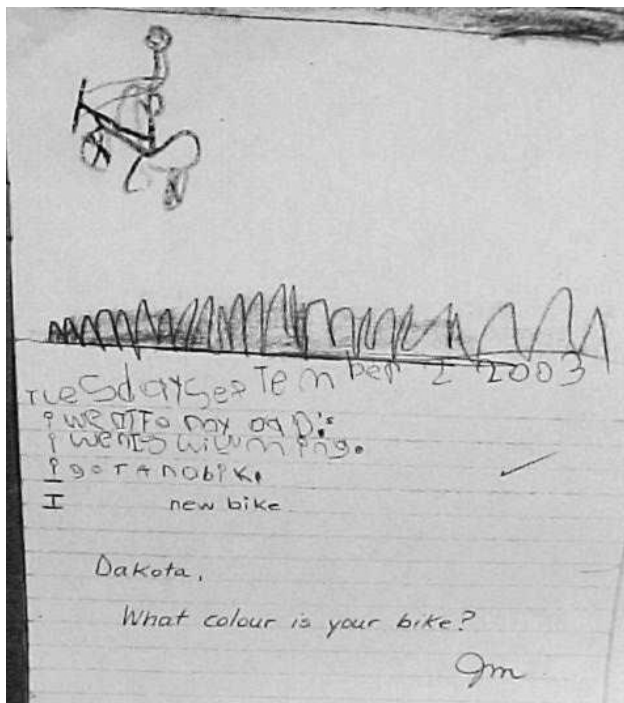 Tuesday September 2 2003
i wentTo my DaD's.
i wentswimming.
i goT A nobik.
I new bike
Dakota,
What colour is your bike?
Jm